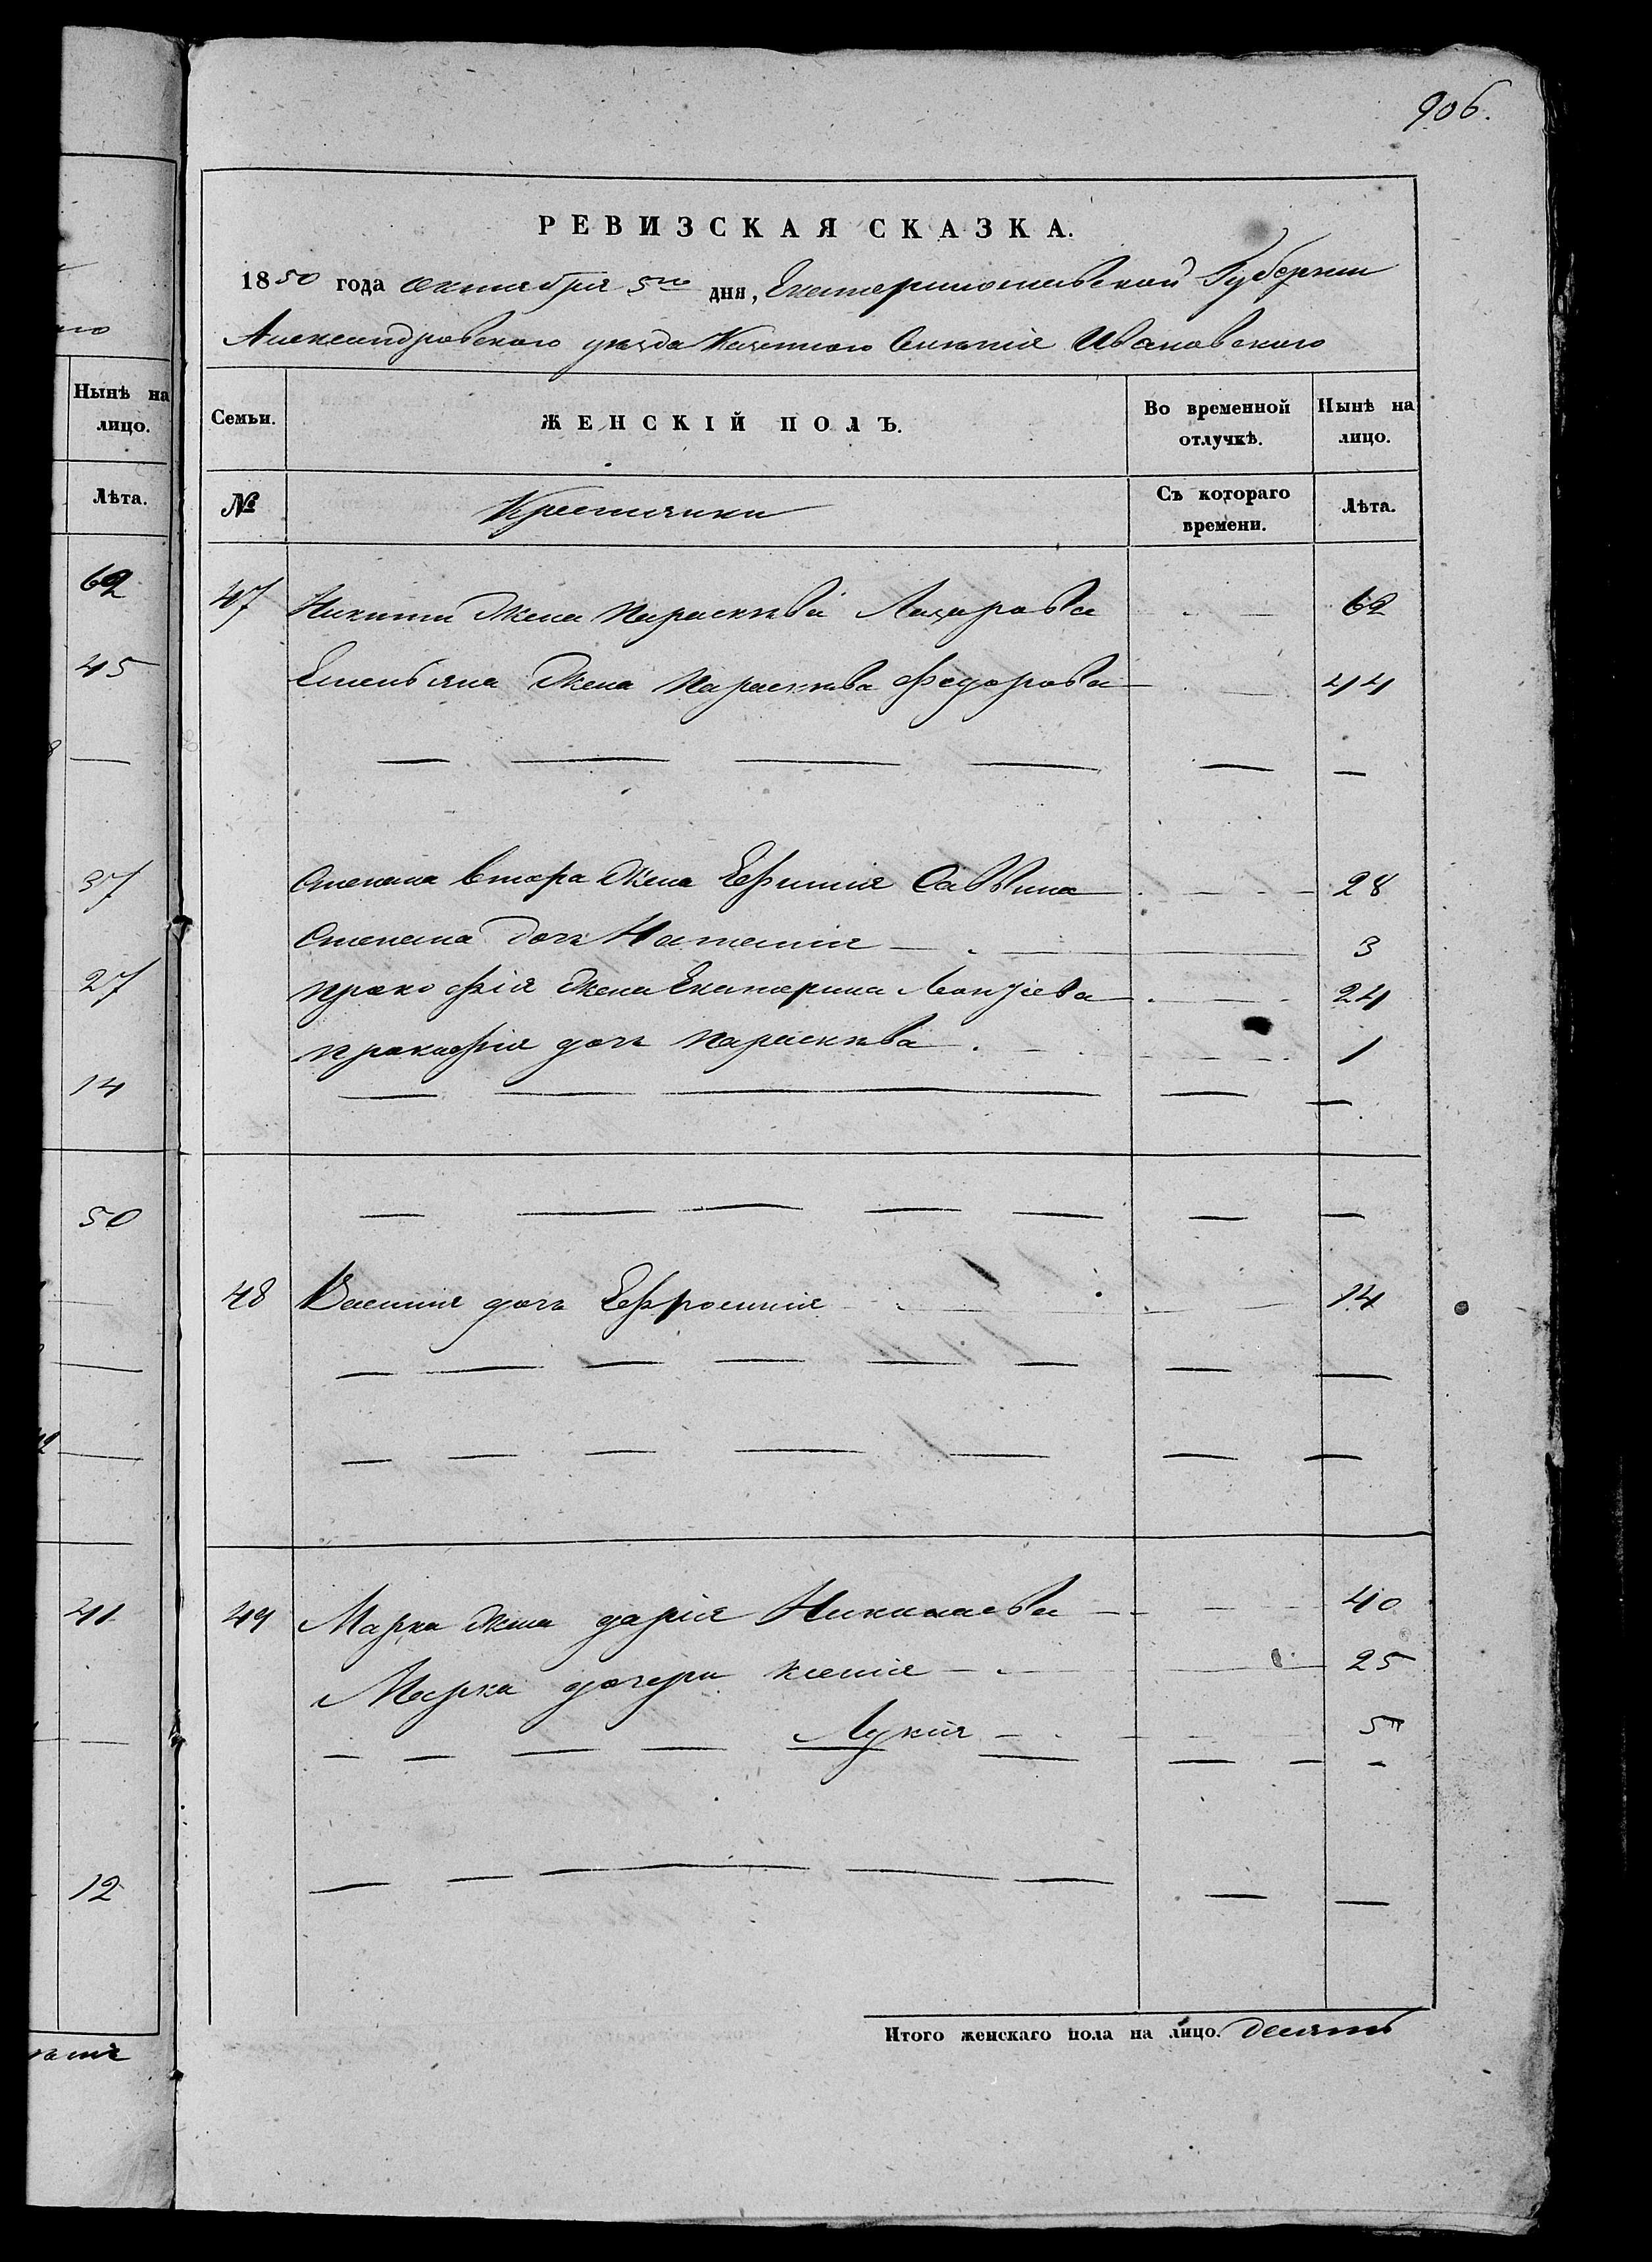 906.
РЕВИЗСКАЯ СКАЗКА.
1850 года октября 5го дня, Екатеринославской Губернии
Александровского уезда Казенного Селенія Ивановского
Нынѣ на лицо.
Лѣта.
62
45
37
27
14
50
41
12
Семьи.
ЖЕНСКІЙ ПОЛЪ.
Во временной отлучкѣ.
Нынѣ на лицо.
№
Крестянки
Съ котораго времени.
Лѣта.
47 Никити жена Параскевіи Лазарова 62
Емельяна жена Параскева Федорова 44
Степана втора жена Ефимия Саввина 28
Степана дочь Наталия 3
Прокофія жена Екатерина Леонтіева 24
Прокофія дочь Параскева 1
48 Василия дочь Ефросиния 14
49 Марка жена Дарія Николаева 40
Марка дочери Ксения 25
Лукия 5
Итого женскаго пола на лицо. десять